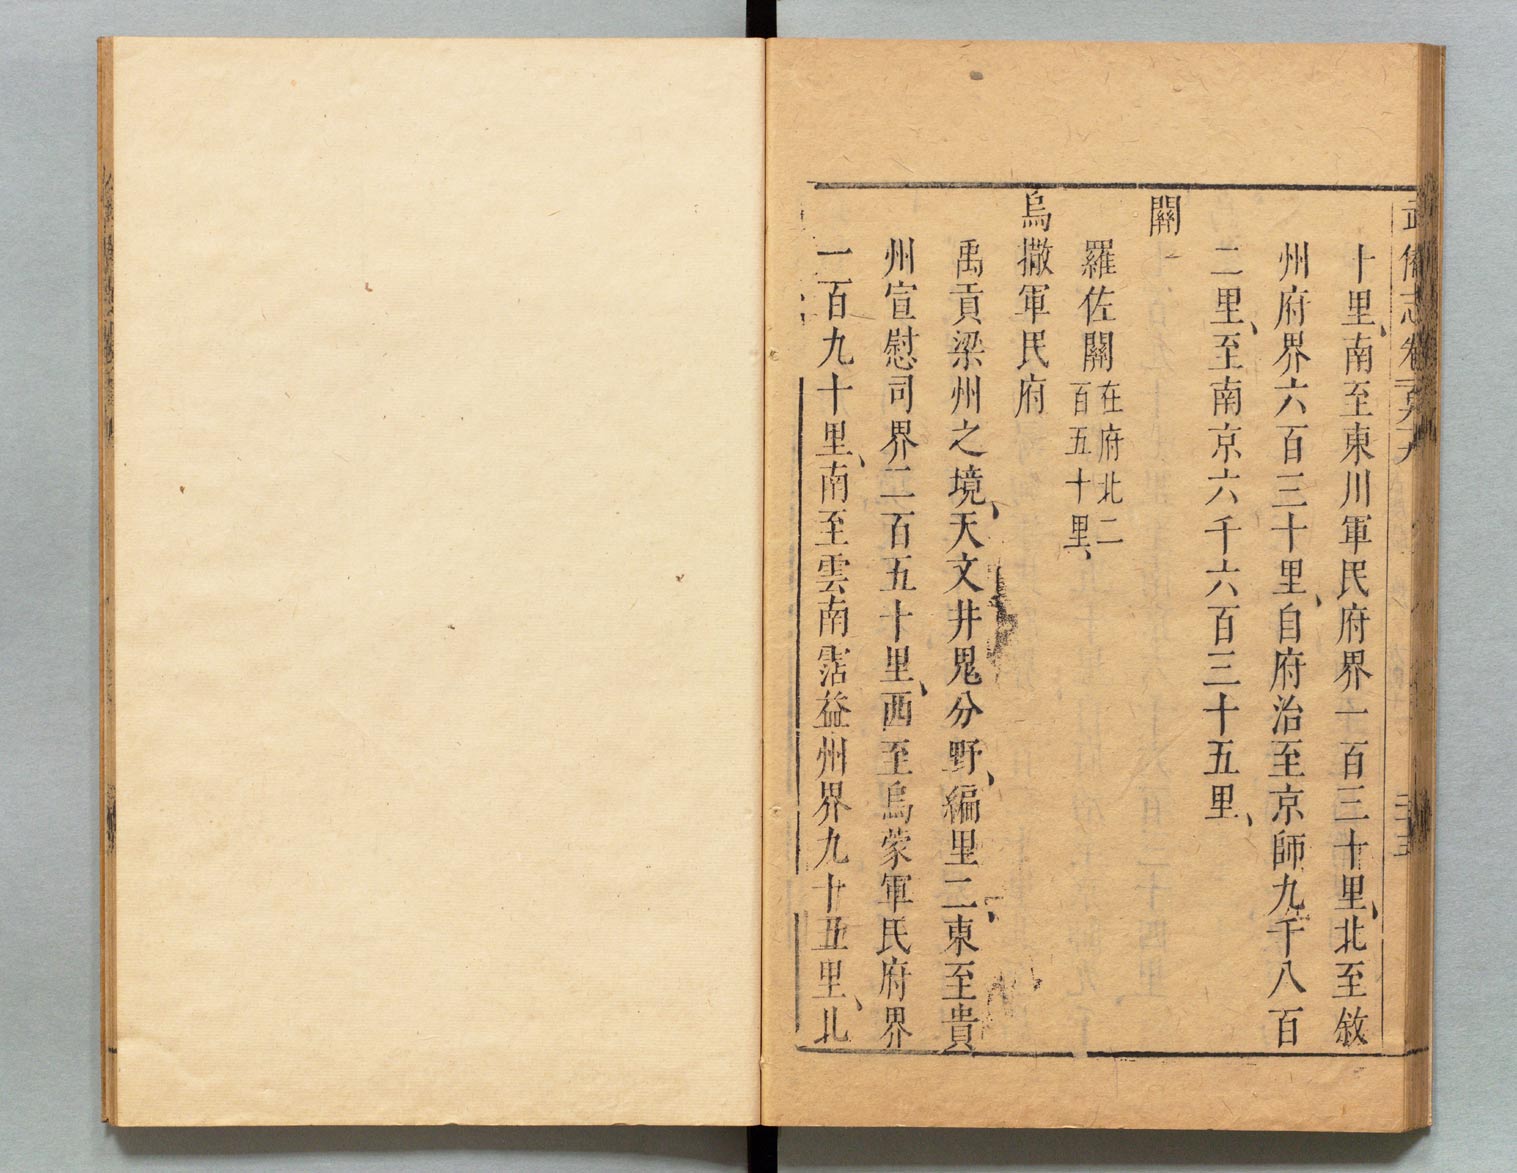 武備志卷
十里、南至東川軍民府界一百三十里、北至敘
州府界六百三十里、自府治至京師九千八百
二里、至南京六千六百三十五里、
關
羅佐關在府北二
百五十里、
烏撒軍民府
禹貢梁州之境、天文井鬼分野、編里二、東至貴
州宣慰司界二百五十里、西至烏蒙軍民府界
一百九十里、南至雲南霑益州界九十五里、北